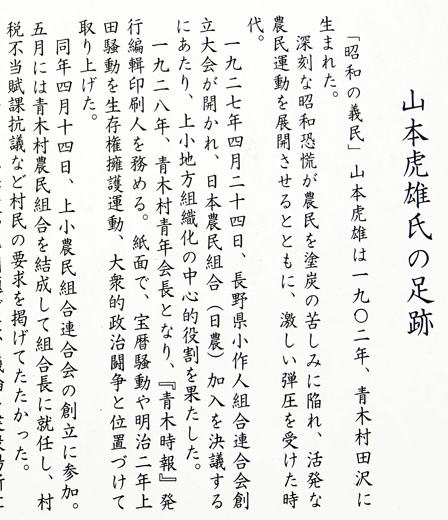 山本虎雄氏の足跡
「昭和の義民」山本虎雄は一九〇二年、青木村田沢に
生まれた。
深刻な昭和恐慌が農民を塗炭の苦しみに陥れ、活発な
農民運動を展開させるとともに、激しい弾圧を受けた時
代。
一九二七年四月二十四日、長野県小作人組合連合会創
立大会が開かれ、日本農民組合（日農）加入を決議する
にあたり、上小地方組織化の中心的役割を果たした。
一九二八年、青木村青年会長となり、『青木時報』発
行編輯印刷人を務める。紙面で、宝暦騒動や明治二年上
田騒動を生存権擁護運動、大衆的政治闘争と位置づけて
取り上げた。
同年四月十四日、上小農民組合連合会の創立に参加。
五月には青木村農民組合を結成して組合長に就任し、村
税不当賦課抗議など村民の要求を掲げてたたかった。